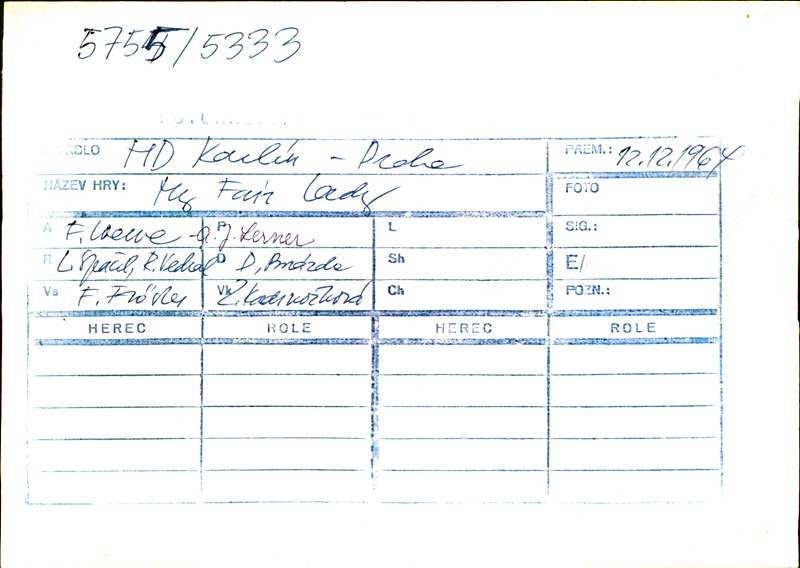 5755/5333
DIVADLO MD Karlín - Praha PREM.: 12.12.1964
NÁZEV HRY: My Fair Lady FOTO
A F. Loewe - A. J. Lerner P L SIG.:
R L. Spáčil, R. Vedral D D. Brázda Sh E/
Vs F. Tröster Vk Z. Kadrnožková Ch POZN.:
HEREC ROLE HEREC ROLE